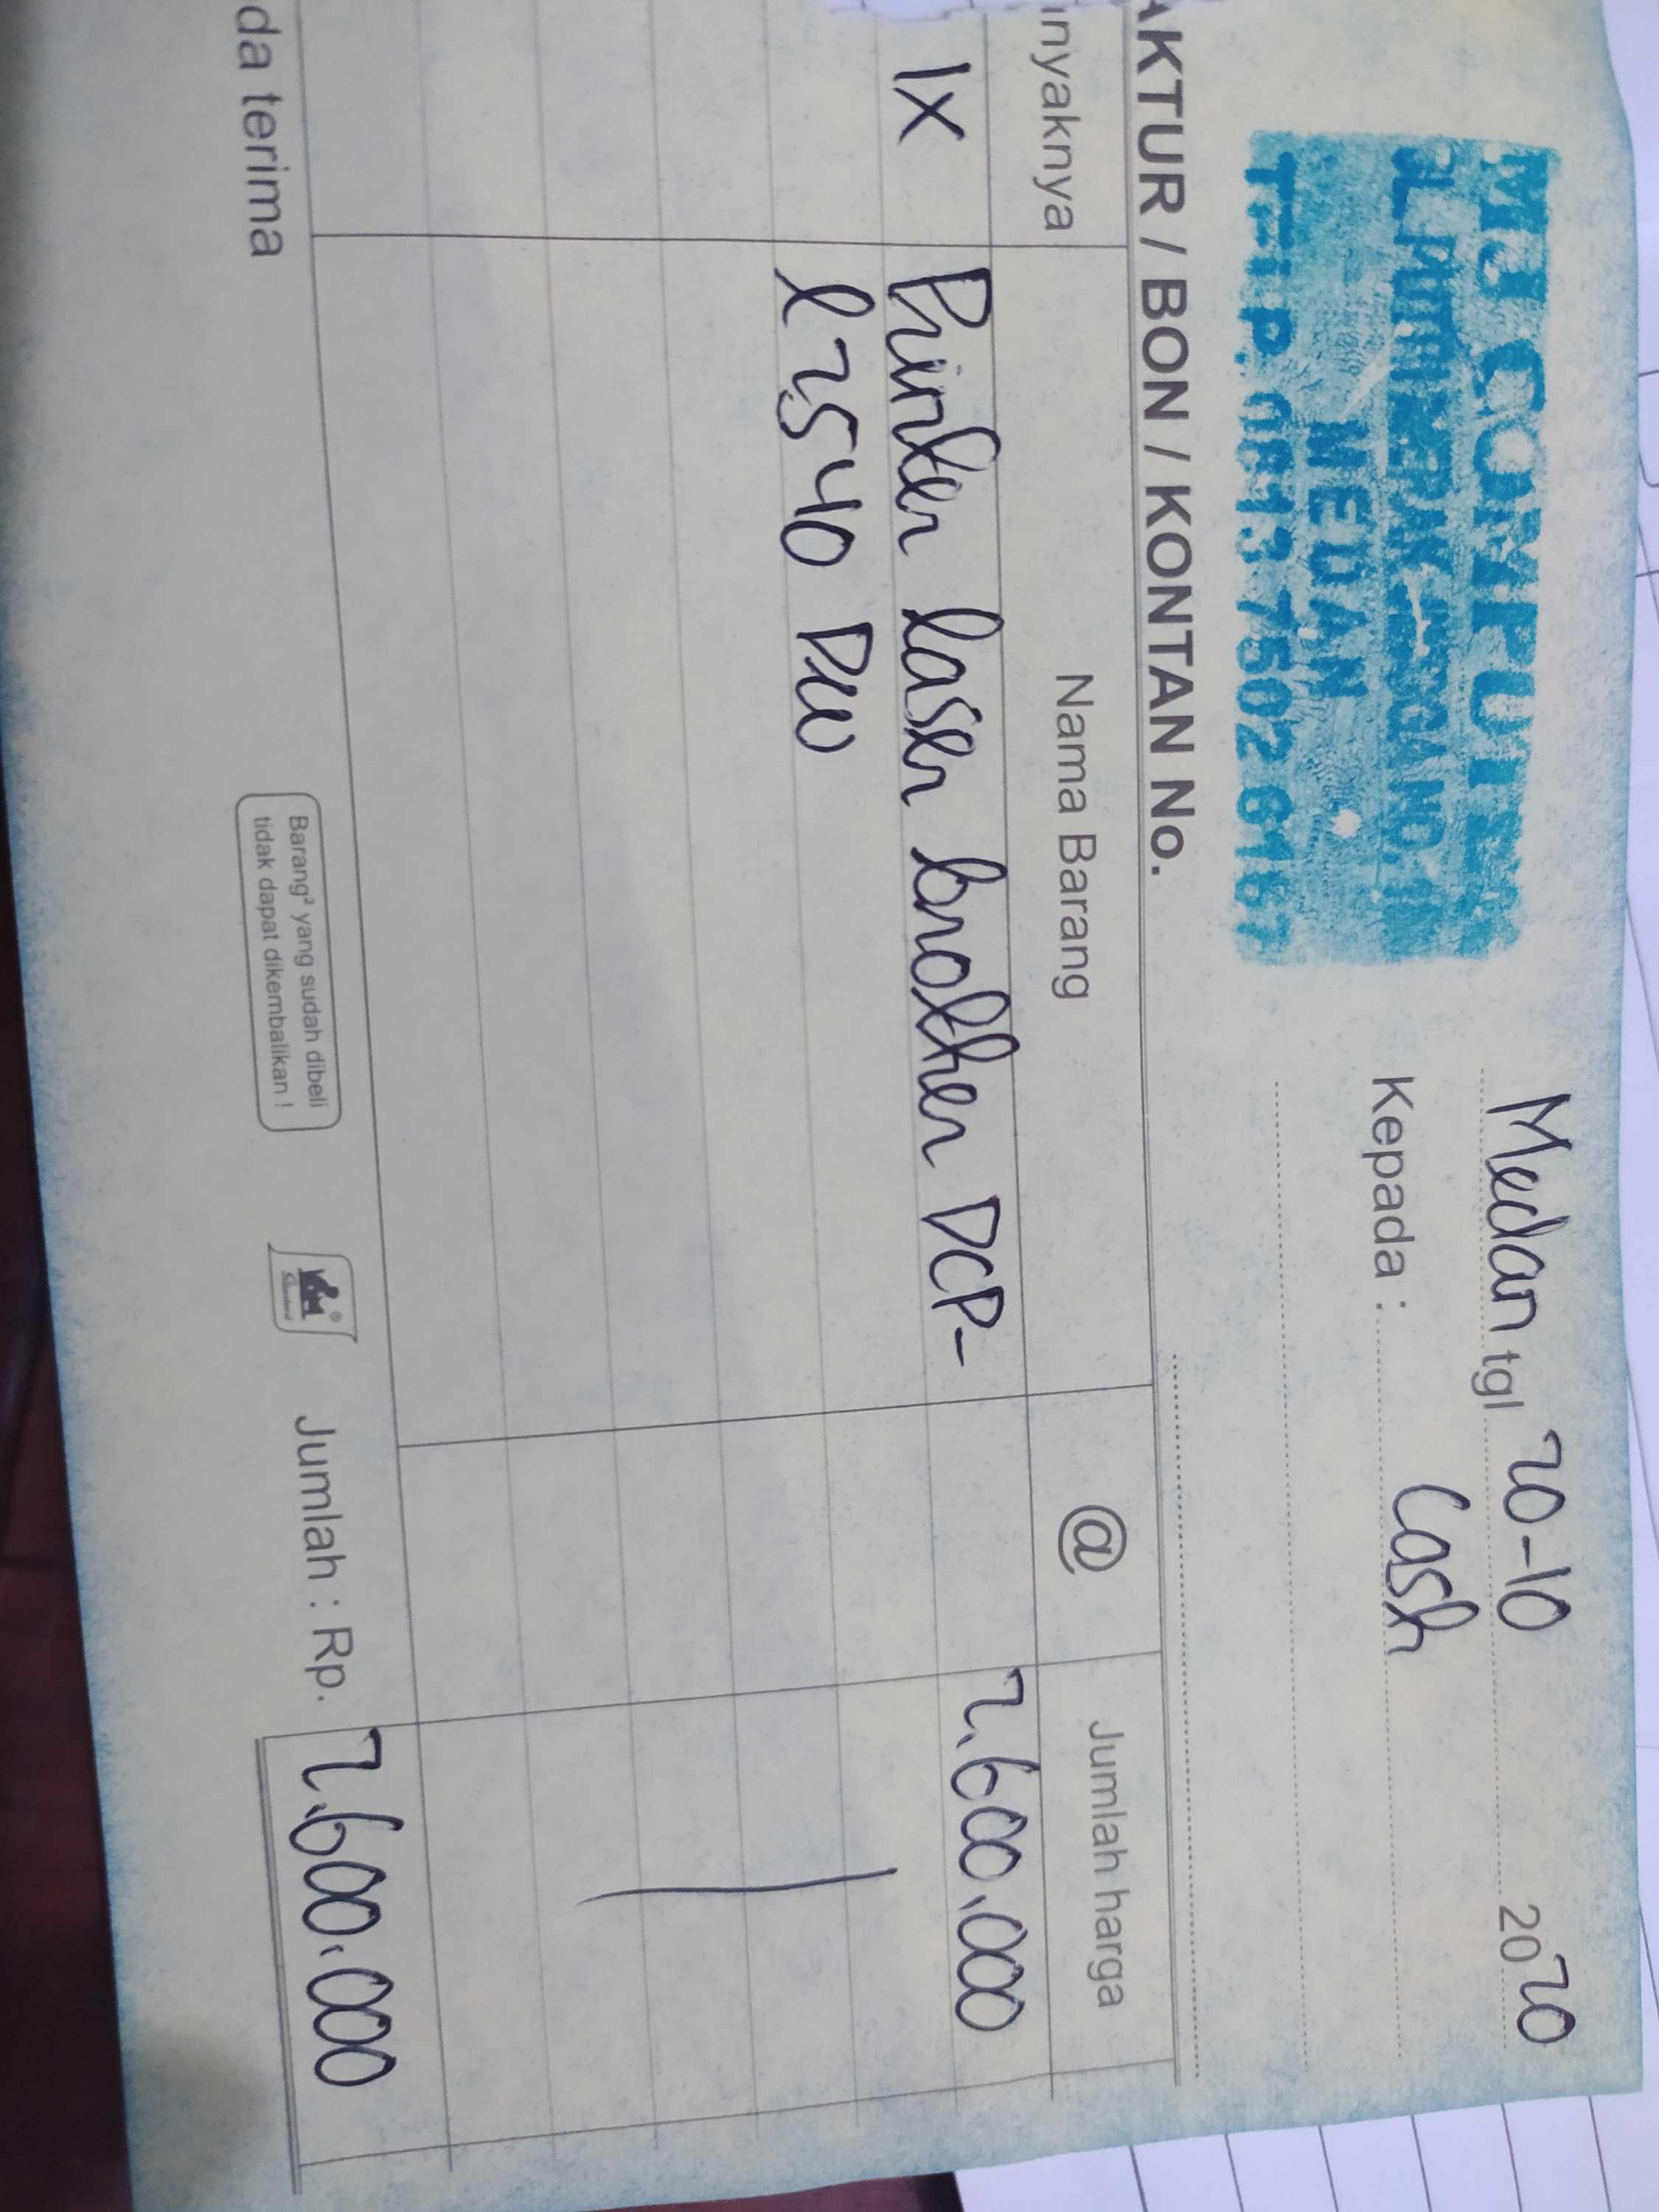 MJ COMPUTER
MEDAN
TELP. 0813 7502 6167
Medan tgl 20-10 2020
Kepada : Cash
AKTUR / BON / KONTAN No.
nyaknya Nama Barang @ Jumlah harga
1x Printer laser brother DCP- 2.600.000
L2540 DW
da terima
Barang² yang sudah dibeli
tidak dapat dikembalikan !
Jumlah : Rp. 2.600.000